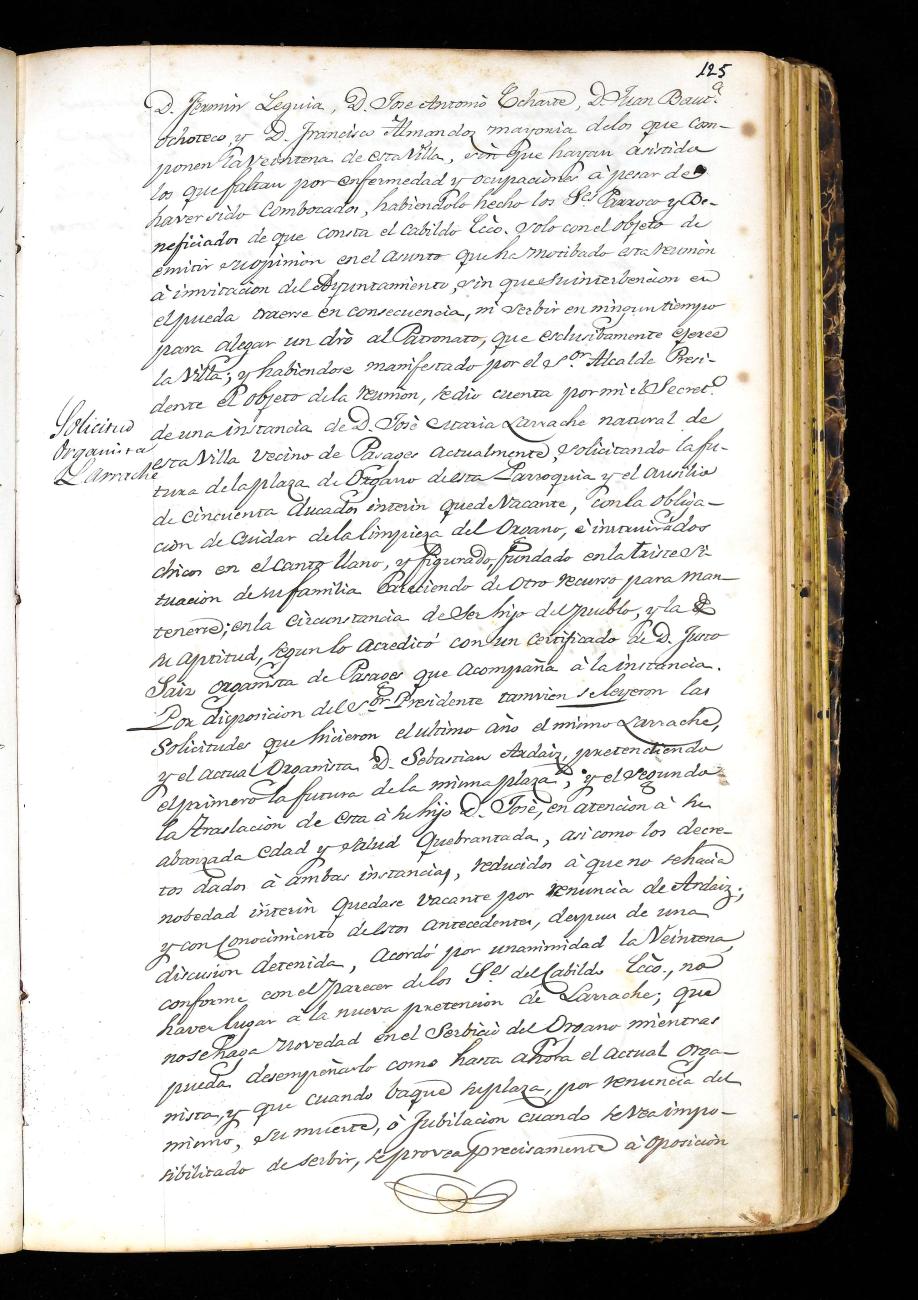 125
D. Fermin Leguia, D. Jose Antonio Echarte, D. Juan Baut.ª
Ochoteco, y D. Francisco Almandoz mayoria delos que com-
ponen la Veintena de esta Villa, sin que hayan asistido
los que faltan por enfermedad y ocupaciones à pesar de
haver sido combocados, habiendolo hecho los S.es Parroco y Be-
neficiados de que consta el Cabildo Ecco. solo con el objeto de
emitir su opinion en el asunto que ha motibado esta reunion
à invitacion del Ayuntamiento, sin que su interbencion en
el pueda traerse en consecuencia, ni serbir en ningun tiempo
para alegar un drò al Patronato, que esclusibamente ejerce
la Villa; y habiendose manifestado por el S.or Alcalde Presi-
dente el objeto de la reunion, se dio cuenta por mi el Secret.º
Solicitud
organista
Larrache
de una instancia de D. Josè Maria Larrache natural de
esta Villa vecino de Pasages actualmente, solicitando la fu-
tura de la plaza de Organo de esta Parroquia y el Ausilio
de cincuenta ducados interin quede Vacante, con la obliga-
cion de Cuidar de la limpieza del Organo, è instruir à dos
chicos en el Canto llano, y figurado, fundado en la triste si-
tuacion de su familia Careciendo de otro recurso para man-
tenerse; en la circunstancia de Ser hijo del Pueblo, y la de
su aptitud, segun lo acreditó con un certificado de D. Justo
Saiz organista de Pasages que acompaña à la instancia.
Por disposicion del S.or Presidente tamvien se leyeron las
Solicitudes que hicieron el ultimo año el mismo Larrache,
y el actual Organista D. Sebastian Ardaiz, pretendiendo
el primero la futura de la misma plaza; y el segundo
la traslacion de esta à su hijo D. Josè, en atencion à su
abanzada edad y salud quebrantada, asi como los decre-
tos dados à ambas instancias, reducidos à que no se hacia
nobedad interin quedase vacante por renuncia de Ardaiz;
y con Conocimiento de estos antecedentes, despues de una
discusion detenida, acordó por unanimidad la Veintena,
conforme con el parecer de los S.es del Cabildo Ecco., no
haver lugar à la nueva pretencion de Larrache; que
no se haga Novedad en el Serbicio del Organo mientras
pueda desempeñarlo como hasta ahora el actual orga-
nista, y que cuando baque su plaza, por renuncia del
mismo, su muerte, ò Jubilacion cuando se vea impo-
sibilitado de serbir, se provea precisamente à oposicion